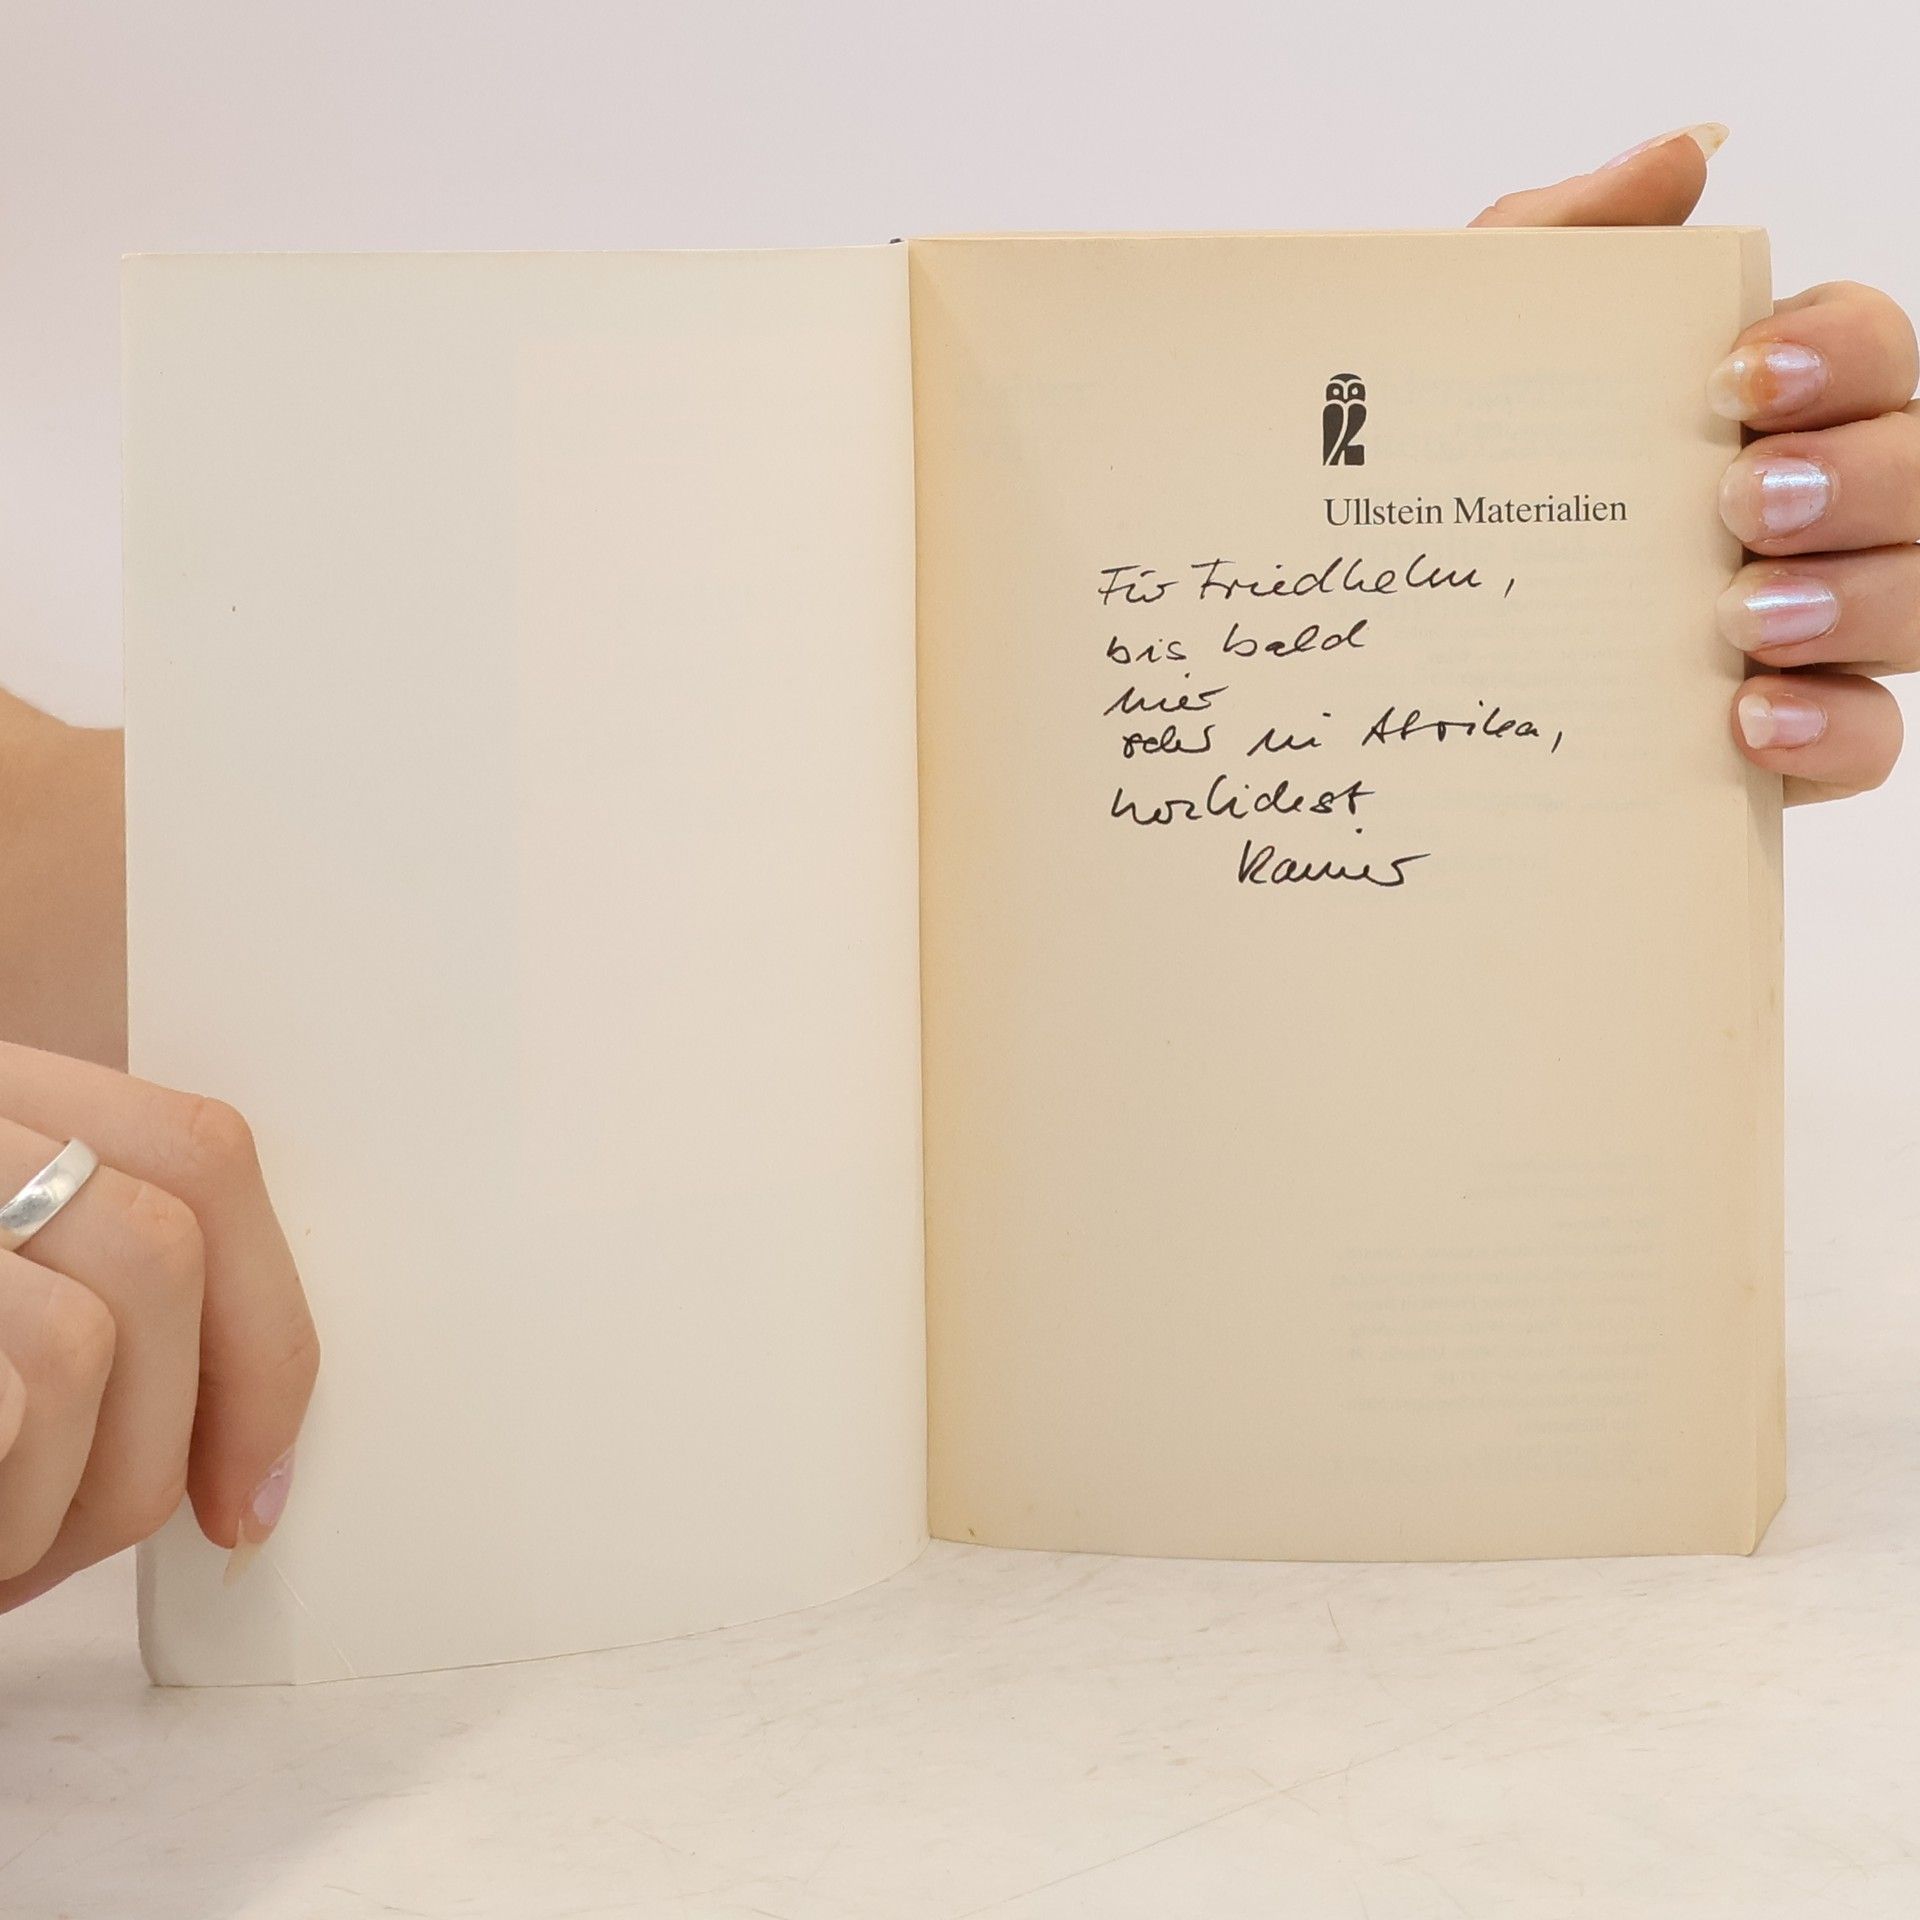 Ullstein Materialien
Für Friedhelm,
bis bald
hier
oder in Afrika,
herzlichst
Rainer